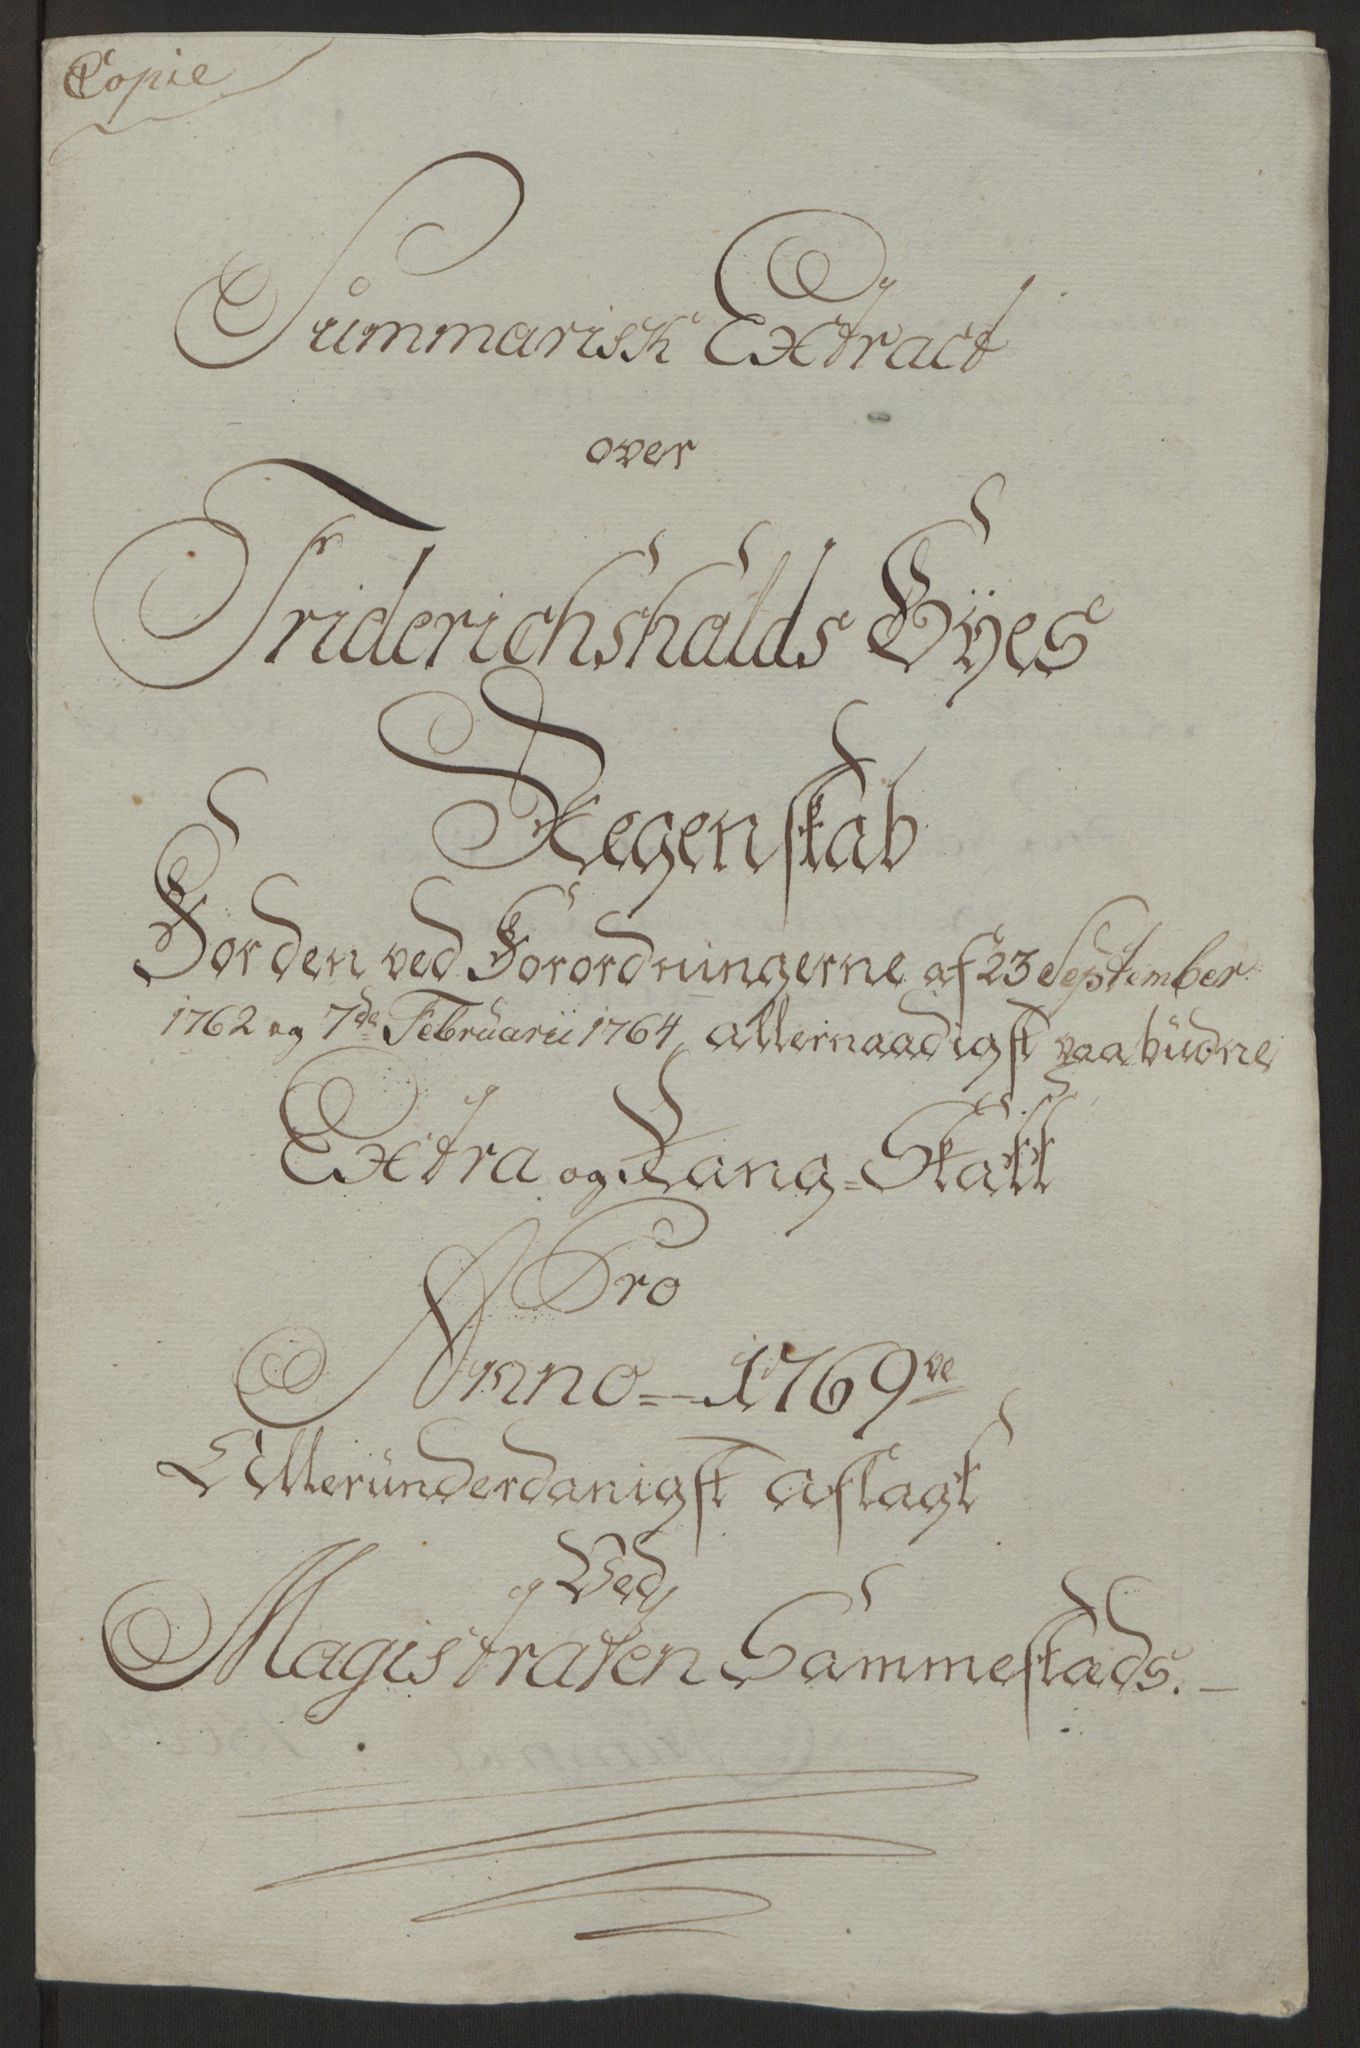 Copie
Summarisk Extract
over
Friderichshalds Byes
Regenskab
For den ved Forordningerne af 23 September
1762 og 7de Februarii 1764 allernaadigst paabudne
Extra og Rang-Skatt
Pro
Anno 1769ve
Allerunderdanigst aflagt
Ved
Magistraten Sammestæds.